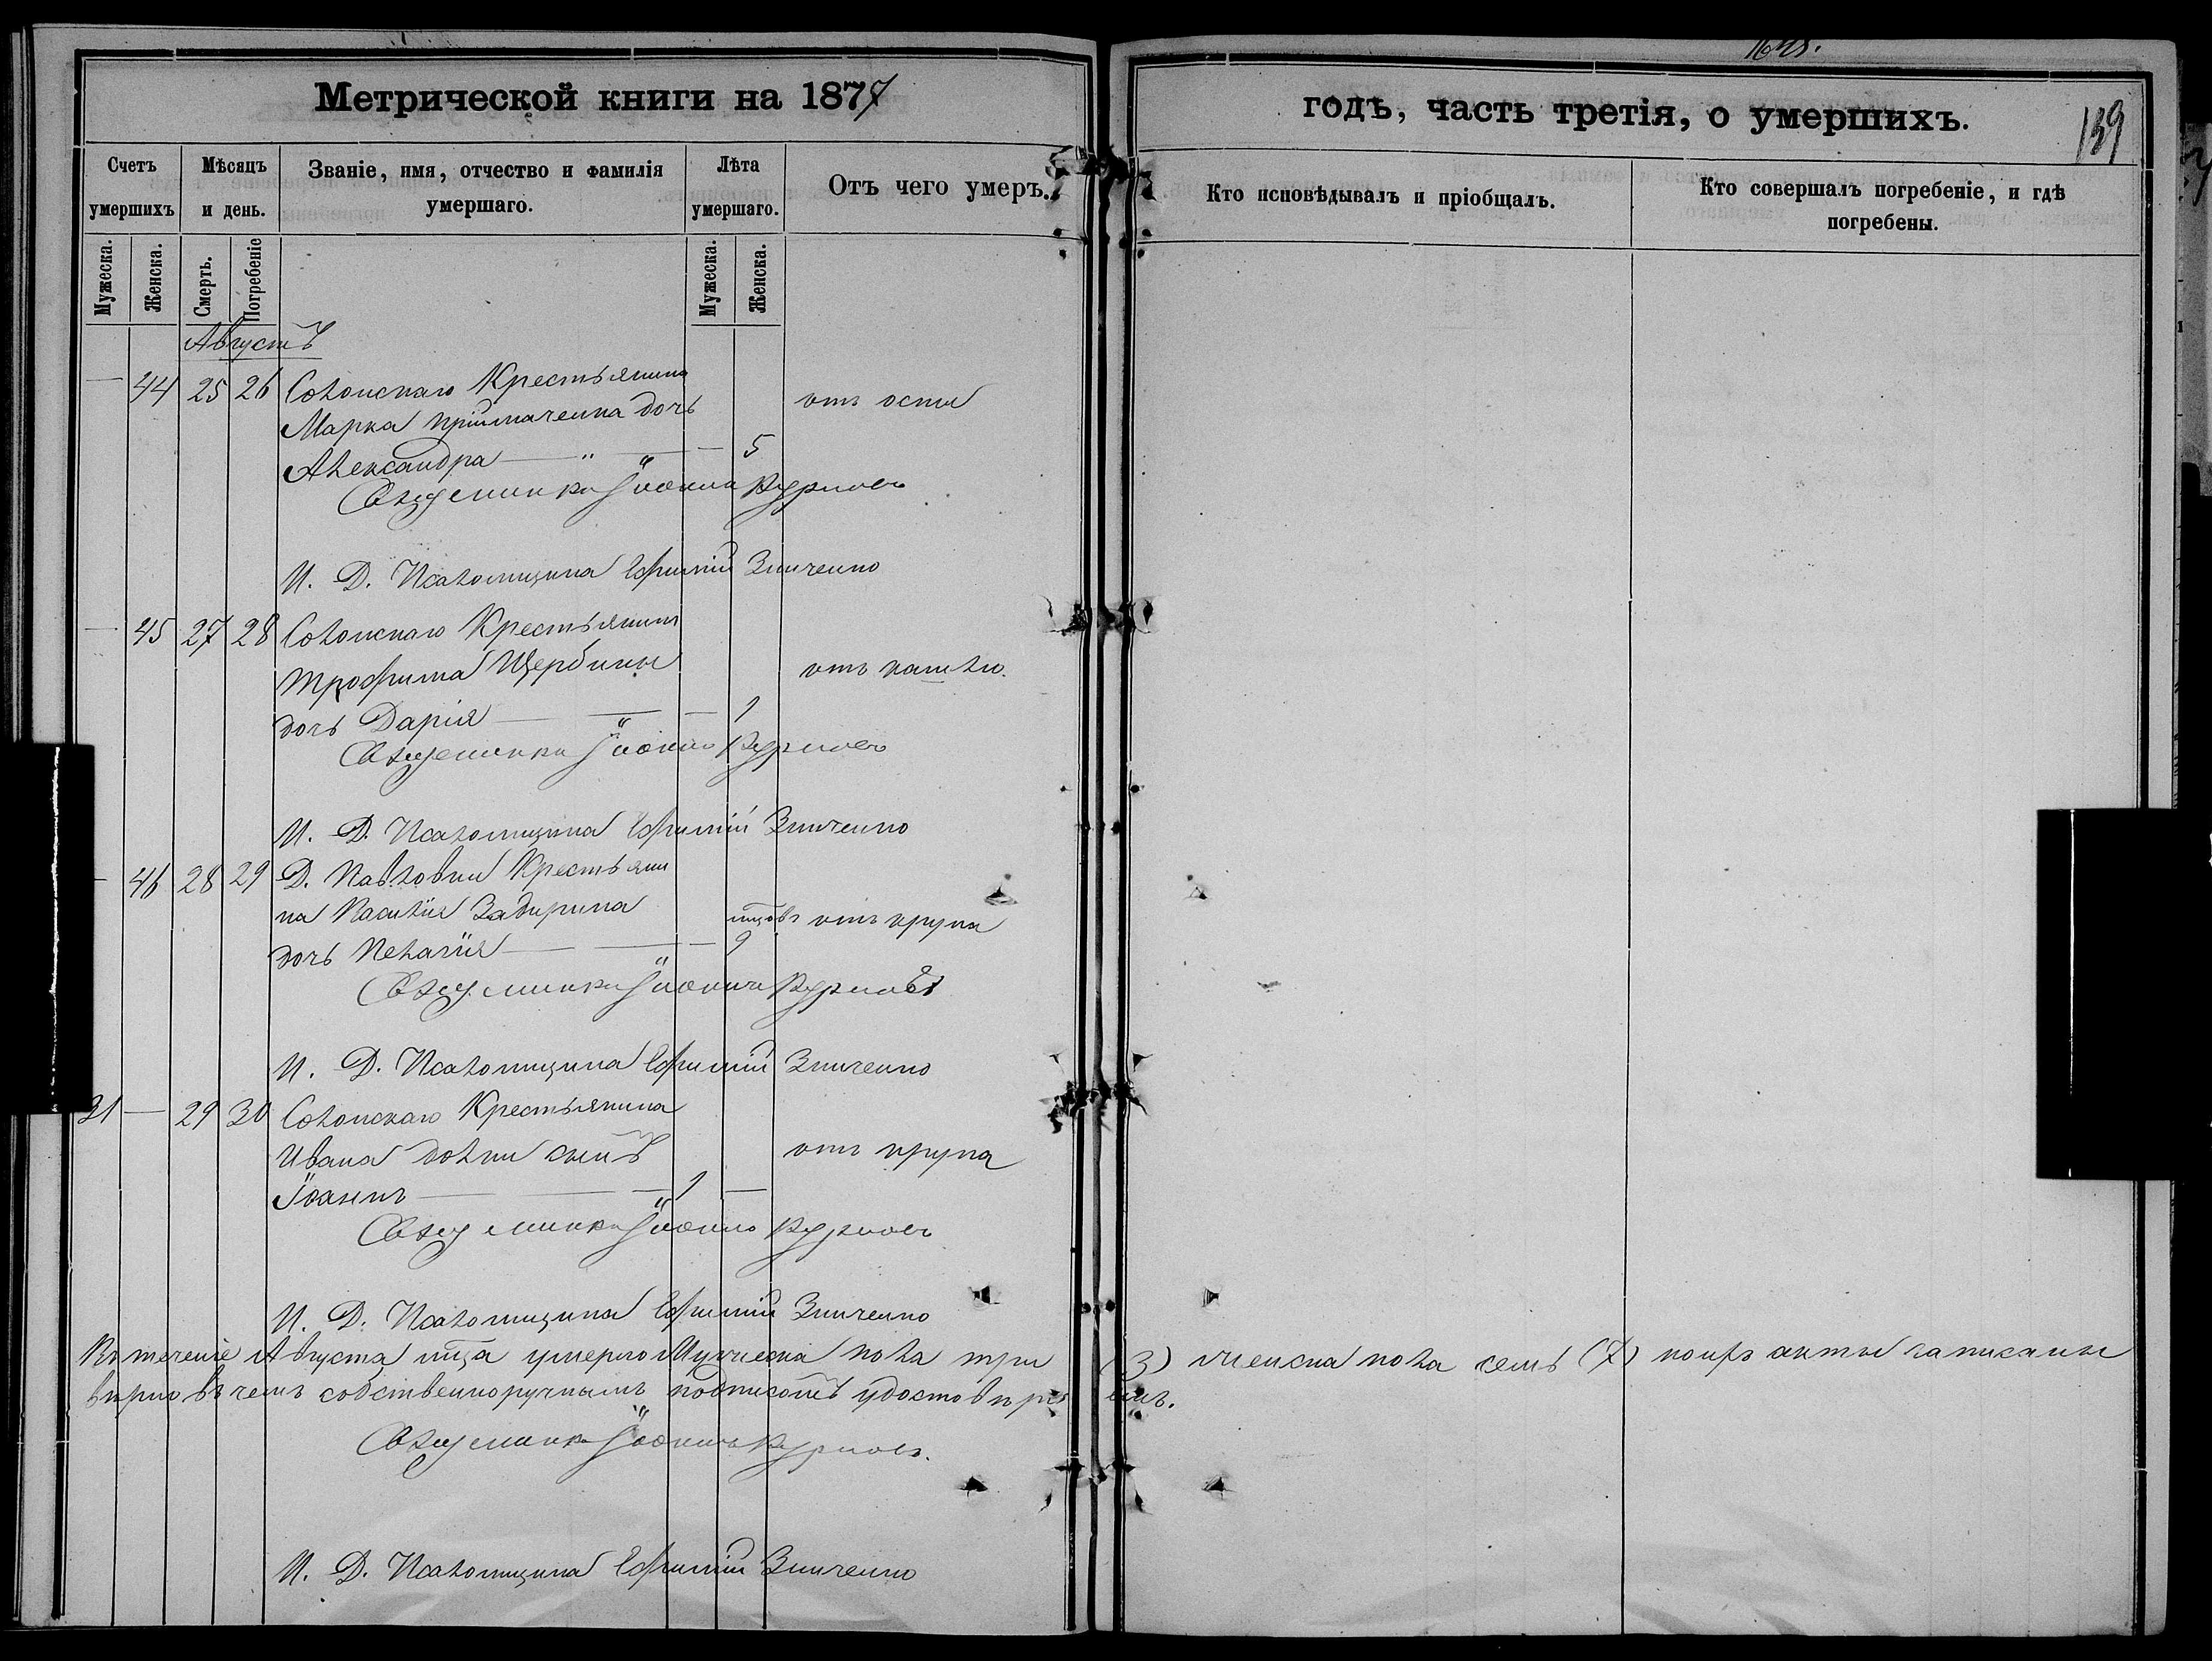 Метрической книги на 1877
годъ, часть третія, о умершихъ.
139
Счетъ умершихъ
Мѣсяцъ и день.
Званіе, имя, отчество и фамилія умершаго.
Лѣта умершаго.
Отъ чего умеръ.
Кто исповѣдывалъ и пріобщалъ.
Кто совершалъ погребеніе, и гдѣ погребены.
Мужеска.
Женска.
Смерть.
Погребеніе
Мужеска.
Женска.
Августъ
— 44 25 26 Солонскаго Крестьянина
Марка Пріймаченка дочь отъ оспы
Александра — 5
Священникъ Іоаннъ
И. Д. Псаломщика Ефимій Зинченко
— 45 27 28 Солонскаго Крестьянина
Трофима Щербины отъ кашлю.
дочь Дарія — 1
Священникъ Іоаннъ
И. Д. Псаломщика Ефимій Зинченко
— 46 28 29 Д. Павловки Крестьяни
на Задирина отъ крупа
дочь Пелагія — 9
Священникъ Іоаннъ
И. Д. Псаломщика Ефимій Зинченко
31 — 29 30 Солонскаго Крестьянина
Ивана сынъ отъ крупа
Іоаннъ — 1 —
Священникъ Іоаннъ
И. Д. Псаломщика Ефимій Зинченко
Въ теченіе Августа м̃ца умерло Мужеска пола три (3) женска пола семь (7) коихъ акты записаны
вѣрно въ чемъ собственноручнымъ подписомъ удостовѣряемъ.
Священникъ Іоаннъ
И. Д. Псаломщика Ефимій Зинченко